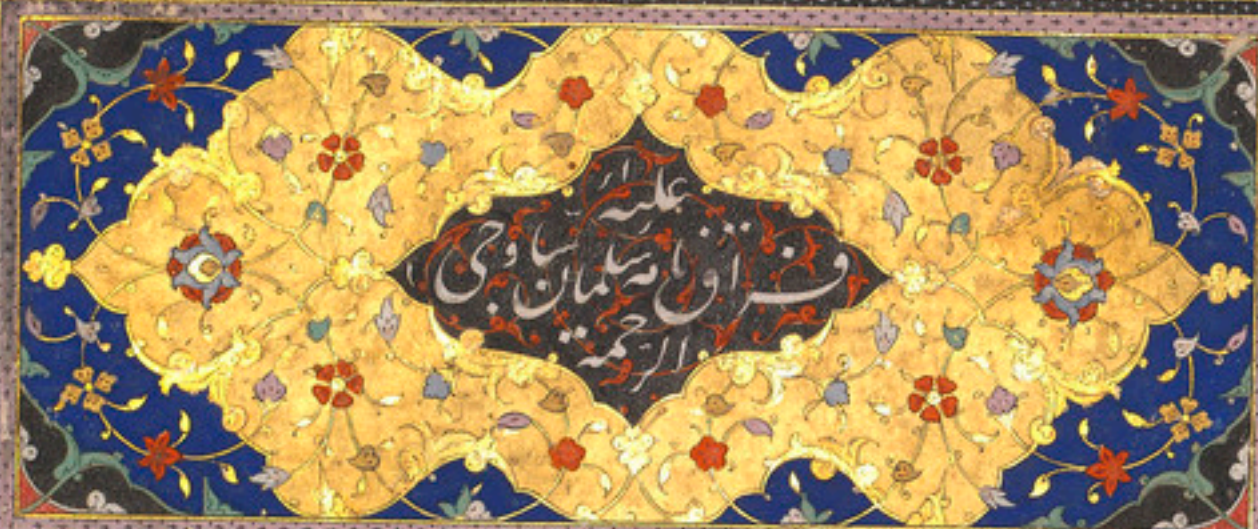 فراق نامه سلمان ساوجی
علیه
الرحمة